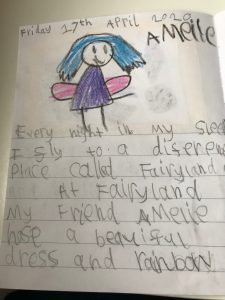 Friday 17th April 2020
AMelie
Every night in my slee
I fly to a diseren
place called Fairyland
At Fairyland
My Friend AMelie
hase a beautiful
dress and rainbow